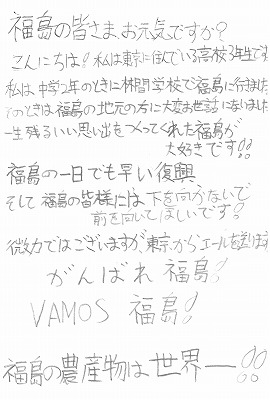 福島の皆さま、お元気ですか?
こんにちは!私は東京に住んでいる高校3年生です
私は中学2年のときに林間学校で福島に行きました
そのときは福島の地元の方に大変お世話になりました
一生残るいい思い出をつくってくれた福島が
大好きです!!
福島の一日でも早い復興
そして福島の皆様には下を向かないで
前を向いてほしいです!
微力ではございますが、東京からエールを送ります
がんばれ 福島!
VAMOS 福島!
福島の農産物は世界一!!